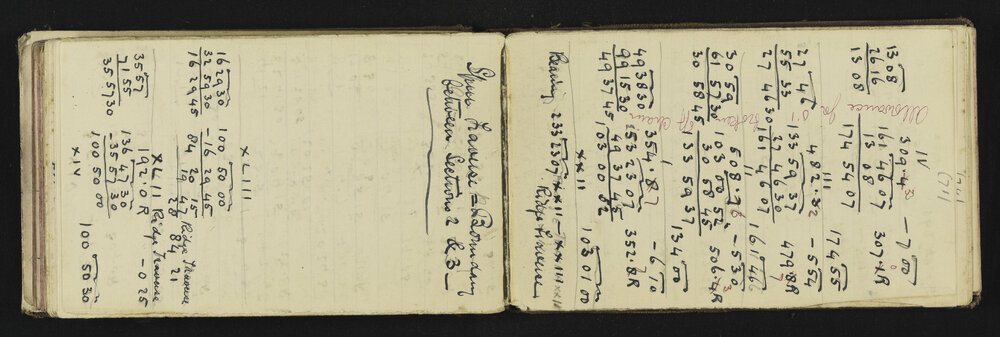 IV
1308 309.2 -7 00
26 16 161 46 07 307.1R
13 08 13 08
174 54 07 174 55
Allowance for
III
27 46 482.82 -5 54
55 33 133 59 37 479.8R
27 46 30 27 46 30
161 46 07 161 46
broken
II
30 59 508.76 -5 30
61 57 30 103 00 52 506.4R
30 58 45 30 58 45
133 59 37 134 00
off chain
I
354.87 -6 70
49 38 30 153 23 07 352.8R
99 15 30 49 37 45
49 37 45 103 00 82 103 01 00
XXII
Bearing 233 23 07 XXII - XXIII
Ridge Traverse
Spur Traverse = Boundary
between Sections 2 & 3
XLIII
16 29 30 100 50 00
32 59 30 -16 29 45
16 29 45 84 20 15
19 47 Ridge Traverse
28 84 21
XLIII Ridge Traverse
192.0R -0 25
35 57 136 47 30
71 55 -35 57 30
35 57 30 100 50 00 100 50 30
XIV